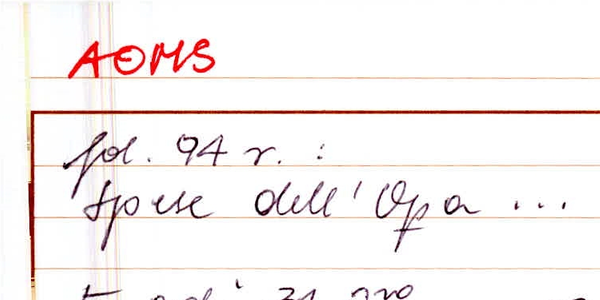 AOMS
fol. 94 r. :
Spese dell'Opa ...